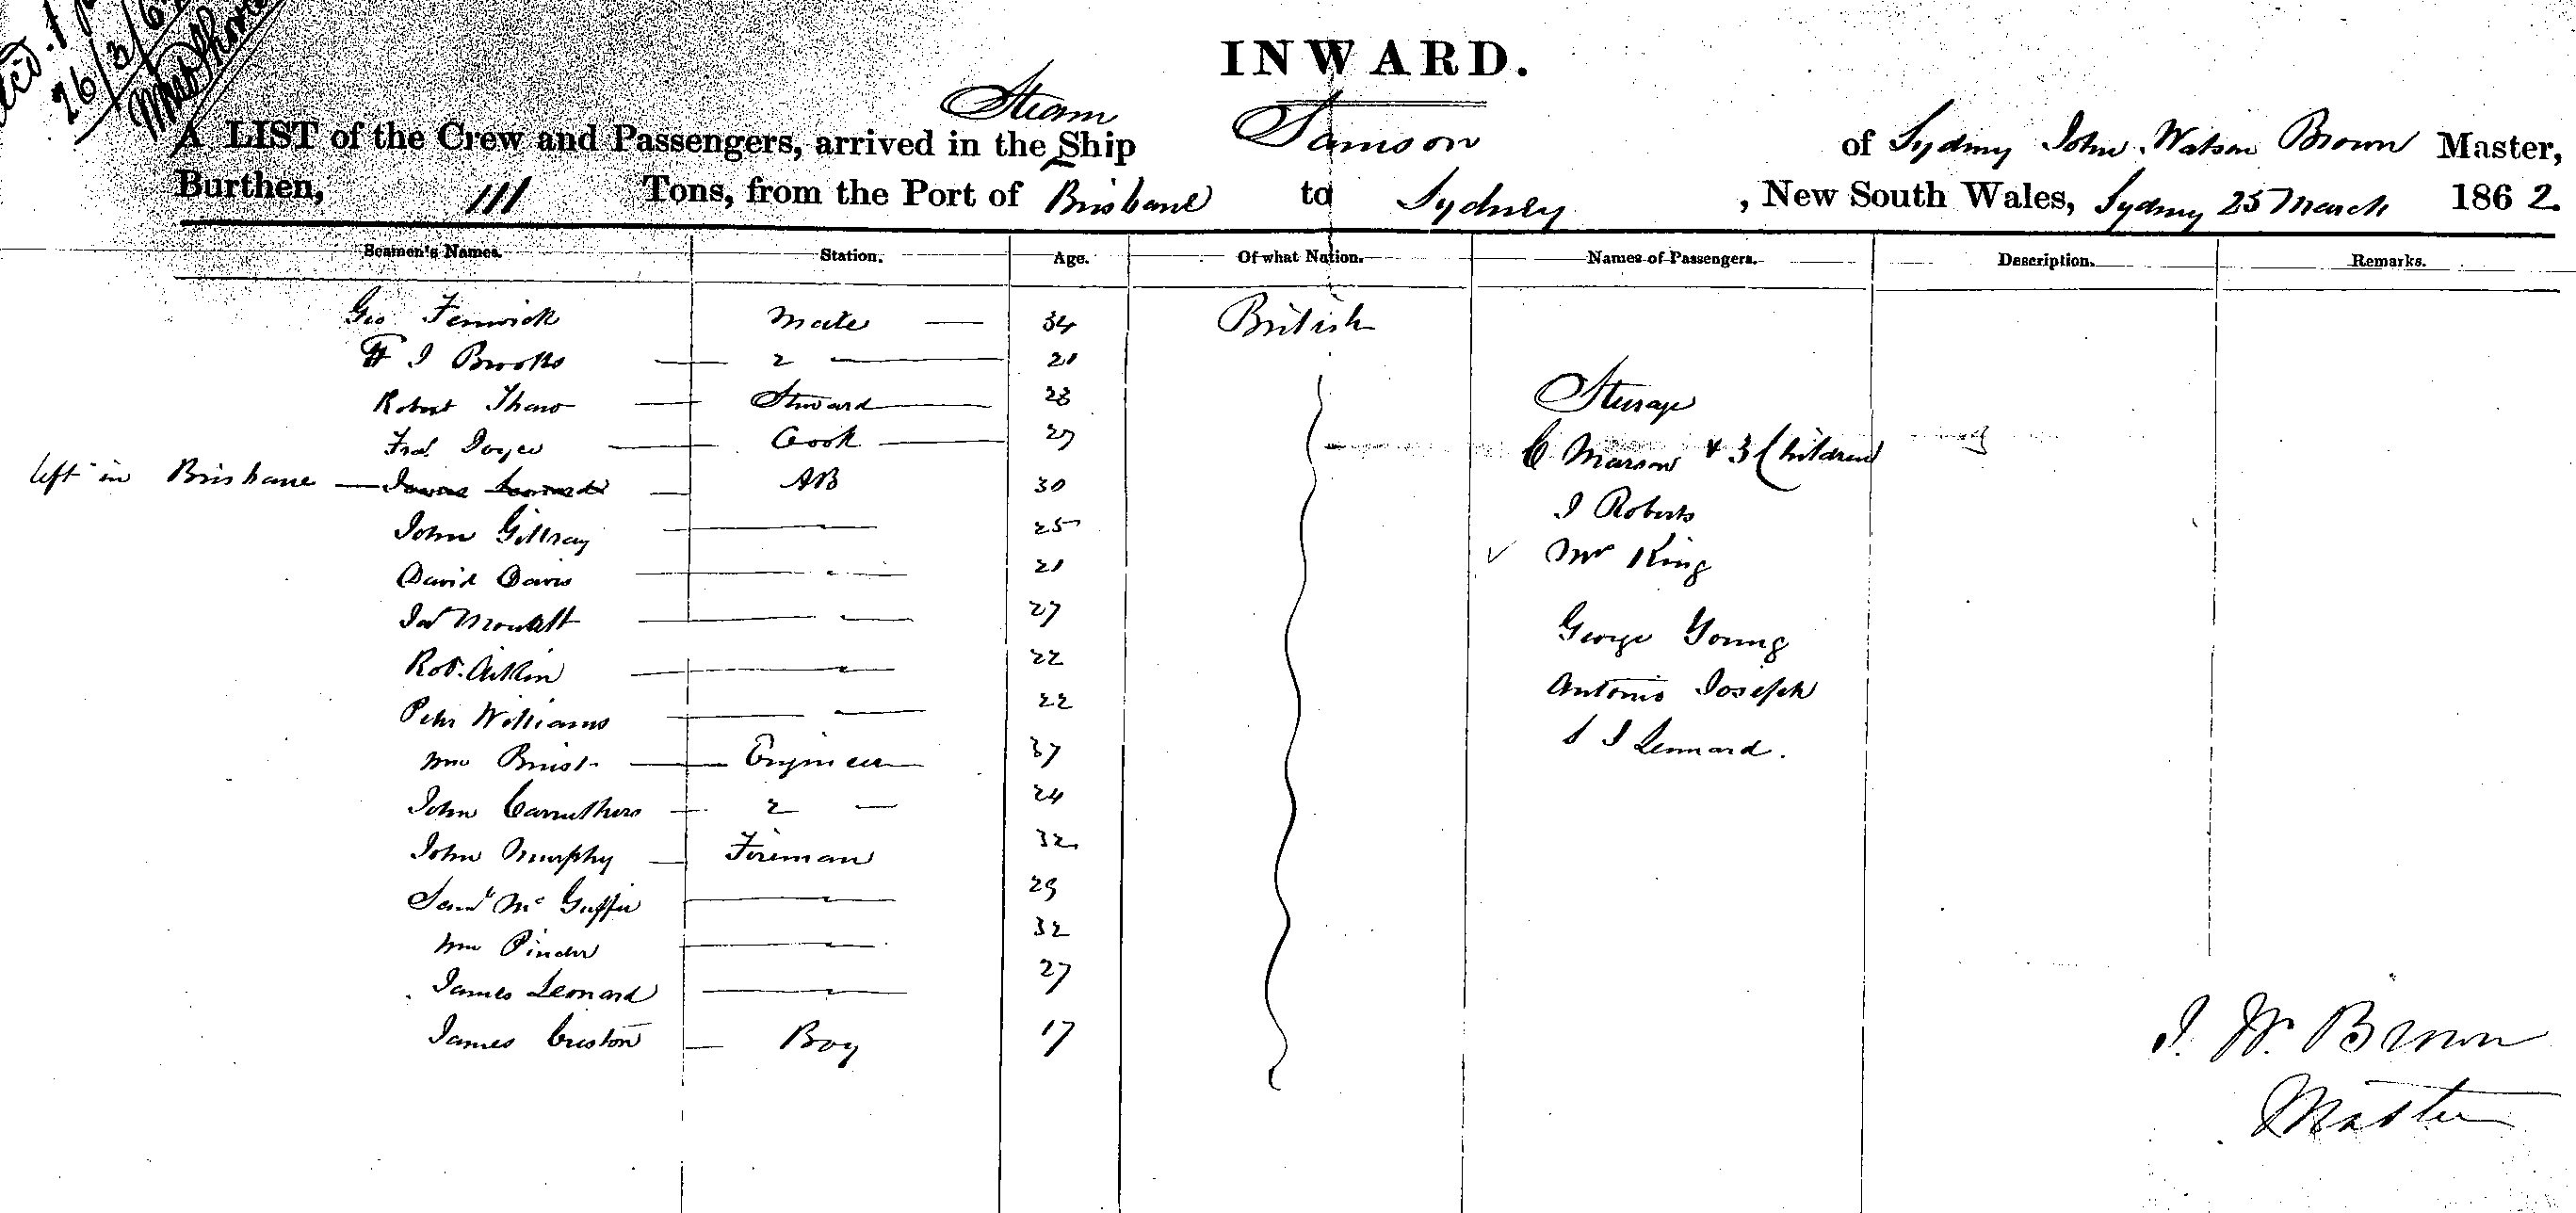 26/3/62
INWARD.
A LIST of the Crew and Passengers, arrived in the Steam Ship Samson of Sydney John Watson Brown Master,
Burthen, 111 Tons, from the Port of Brisbane to Sydney, New South Wales, Sydney 25 March 1862.
Seamen's Names. Station. Age. Of what Nation. Names of Passengers. Description. Remarks.
Geo Fenwick Mate 34 British
I Brooks 2 21
Robert Thaw Steward 28 Sterage
Fred Joyce Cook 27 C Marson + 3 Children
left in Brisbane AB 30
John Gillray 25 I Roberts
David Davis 21 Mr King
Jas Mowatt 27
Robt. Aitkin 22 George Young
Peter Williams 22 Antonio Joseph
Wm Engineer 37 S I Lennard.
John Carruthers 2 24
John Murphy Fireman 32
Saml Mc Guffie 29
Wm Pinder 32
James Leonard 27
James Boy 17
J. W. Brown
Master